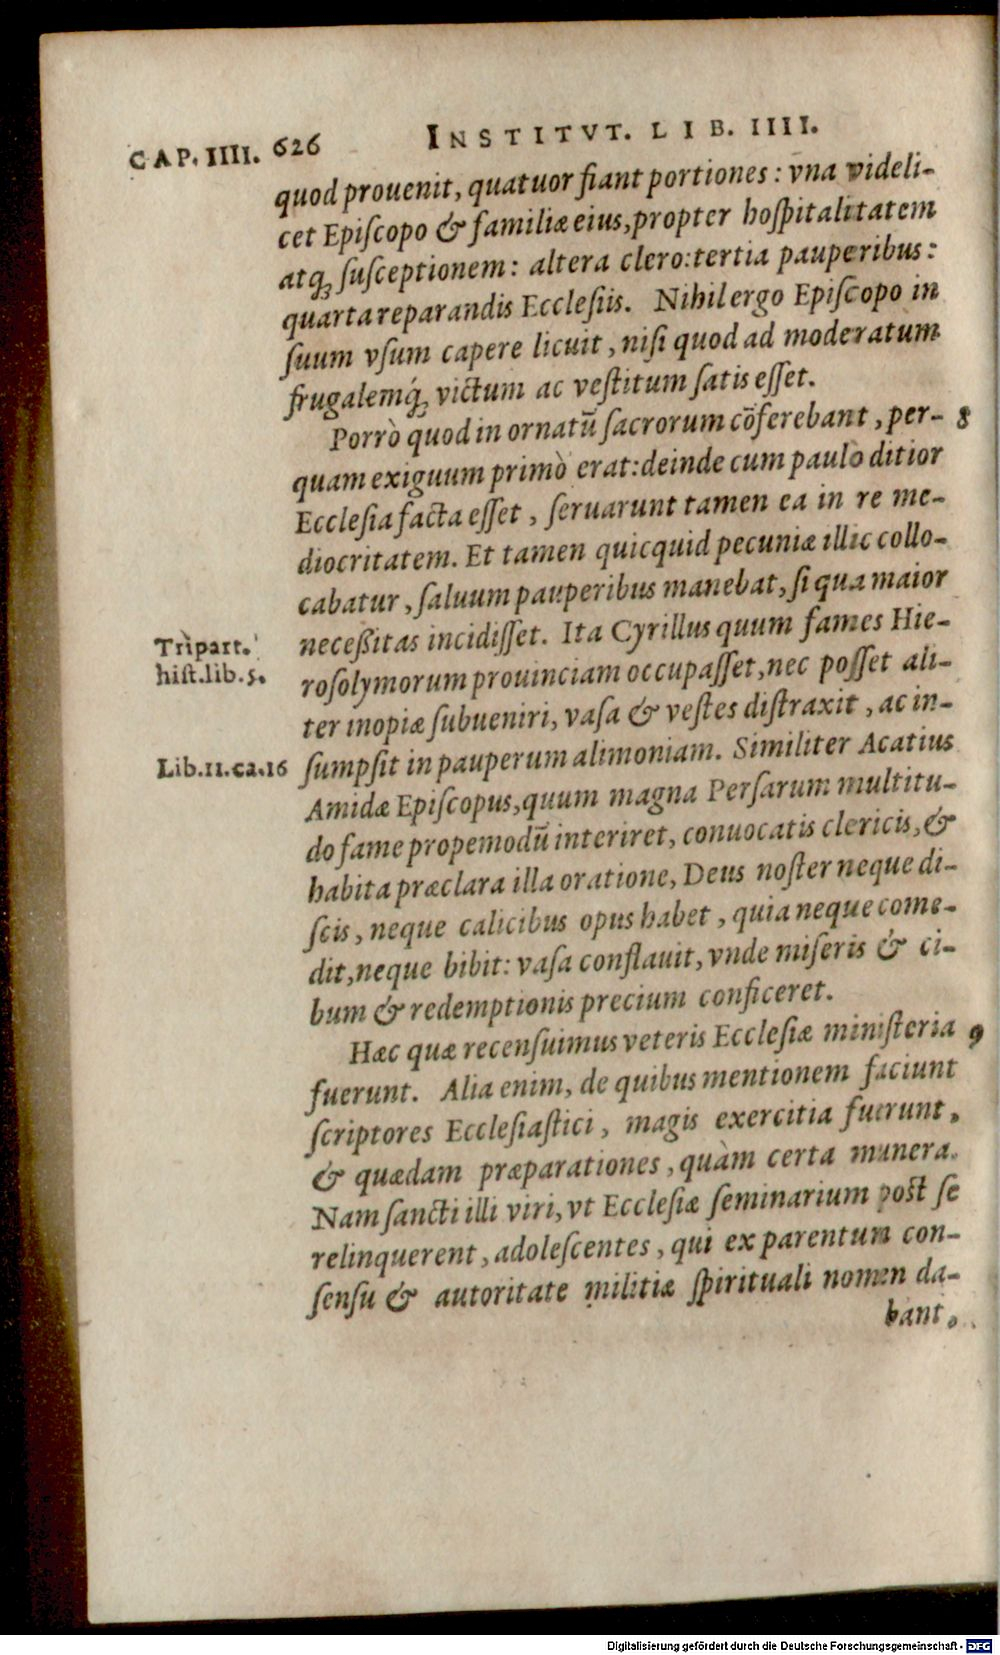 CAP. IIII. 626 INSTITVT. LIB. IIII.
quod prouenit, quatuor fiant portiones: vna videli-
cet Epiſcopo & familiæ eius, propter hoſpitalitatem
atq́; ſuſceptionem: altera clero: tertia pauperibus:
quarta reparandis Eccleſiis. Nihil ergo Epiſcopo in
ſuum vſum capere licuit, niſi quod ad moderatum
frugalemq́; victum ac veſtitum ſatis eſſet.
Porrò quod in ornatū ſacrorum cōferebant, per- 8
quam exiguum primò erat: deinde cum paulò ditior
Eccleſia facta eſſet, ſeruarunt tamen ea in re me-
diocritatem. Et tamen quicquid pecuniæ illic collo-
cabatur, ſaluum pauperibus manebat, ſi qua maior
neceßitas incidiſſet. Ita Cyrillus quum fames Hie-
Tripart.
hiſt. lib. 5.
roſolymorum prouinciam occupaſſet, nec poſſet ali-
ter inopiæ ſubueniri, vaſa & veſtes diſtraxit, ac in-
Lib. 11. ca. 16
ſumpſit in pauperum alimoniam. Similiter Acatius
Amidæ Epiſcopus, quum magna Perſarum multitu-
do fame propemodū interiret, conuocatis clericis, &
habita præclara illa oratione, Deus noſter neque di-
ſcis, neque calicibus opus habet, quia neque come-
dit, neque bibit: vaſa conflauit, vnde miſeris & ci-
bum & redemptionis precium conficeret.
Hæc quæ recenſuimus veteris Eccleſiæ miniſteria 9
fuerunt. Alia enim, de quibus mentionem faciunt
ſcriptores Eccleſiaſtici, magis exercitia fuerunt,
& quædam præparationes, quàm certa munera.
Nam ſancti illi viri, vt Eccleſiæ ſeminarium poſt ſe
relinquerent, adoleſcentes, qui ex parentum con-
ſenſu & autoritate militiæ ſpirituali nomen da-
bant,
Digitalisierung gefördert durch die Deutsche Forschungsgemeinschaft - DFG